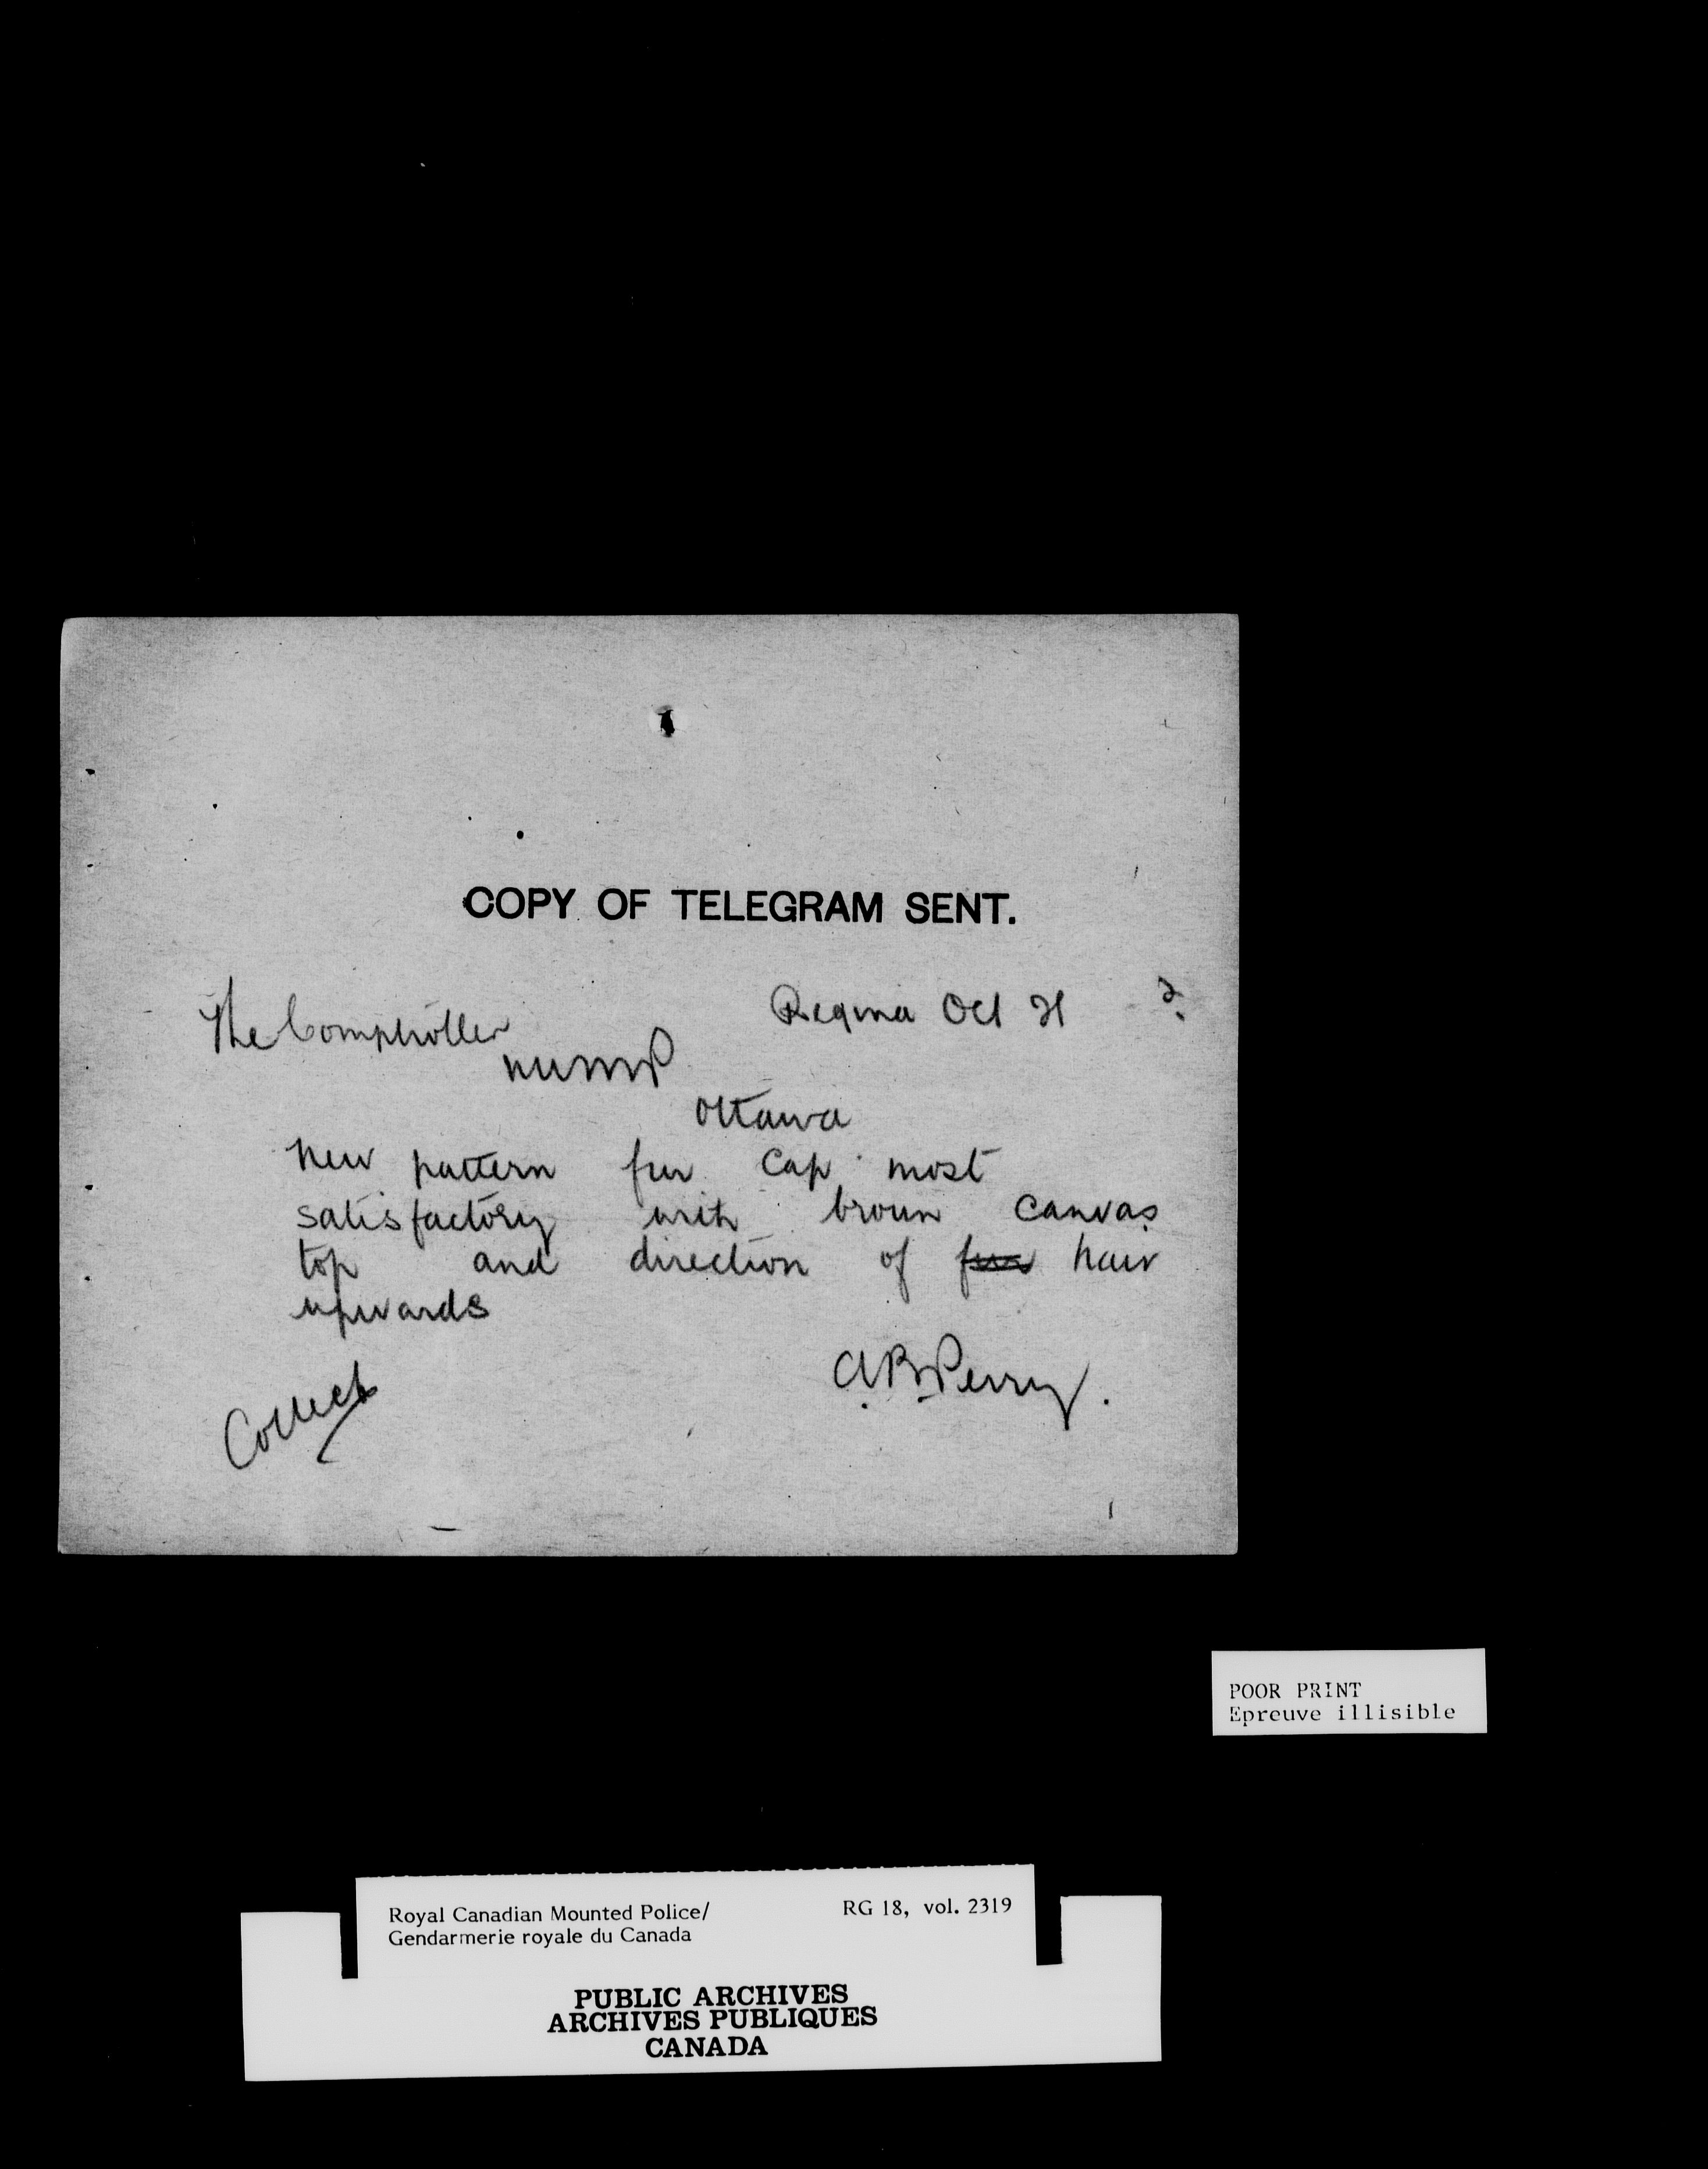 COPY OF TELEGRAM SENT.
Regina Oct 21 2.
The Comptroller
NWMP
Ottawa
New pattern fur cap most
satisfactory with brown canvas
top and direction of fur hair
upwards
A.B. Perry.
Collect
POOR PRINT
Epreuve illisible
Royal Canadian Mounted Police/ RG 18, vol. 2319
Gendarmerie royale du Canada
PUBLIC ARCHIVES
ARCHIVES PUBLIQUES
CANADA